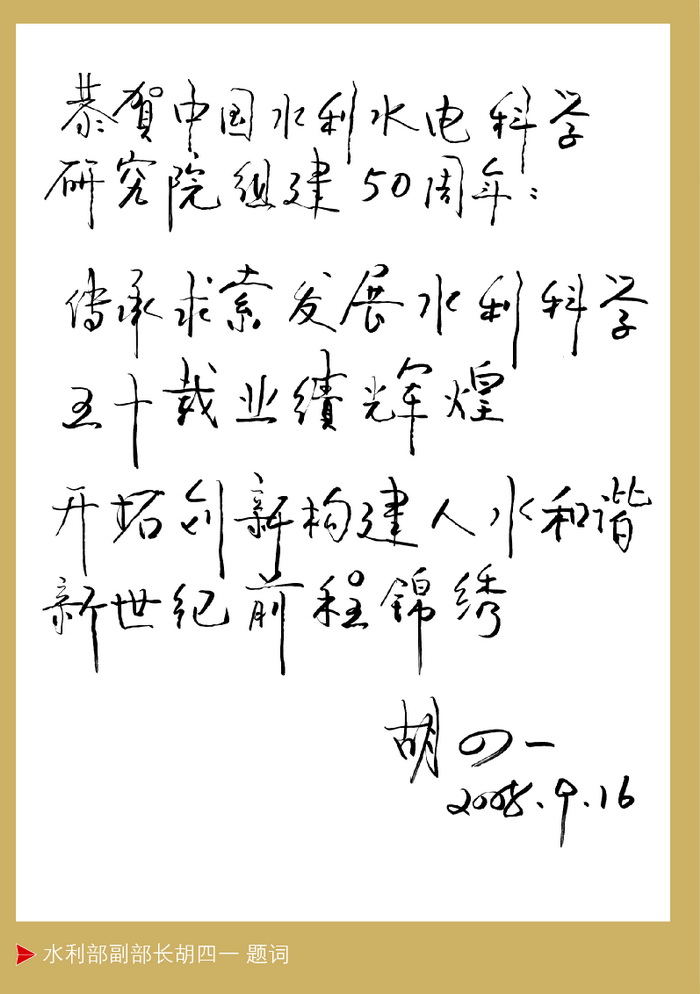 恭贺中国水利水电科学
研究院组建50周年：
传承求索发展水利科学
五十载业绩辉煌
开拓创新构建人水和谐
新世纪前程锦绣
胡四一
2008.9.16
水利部副部长胡四一 题词